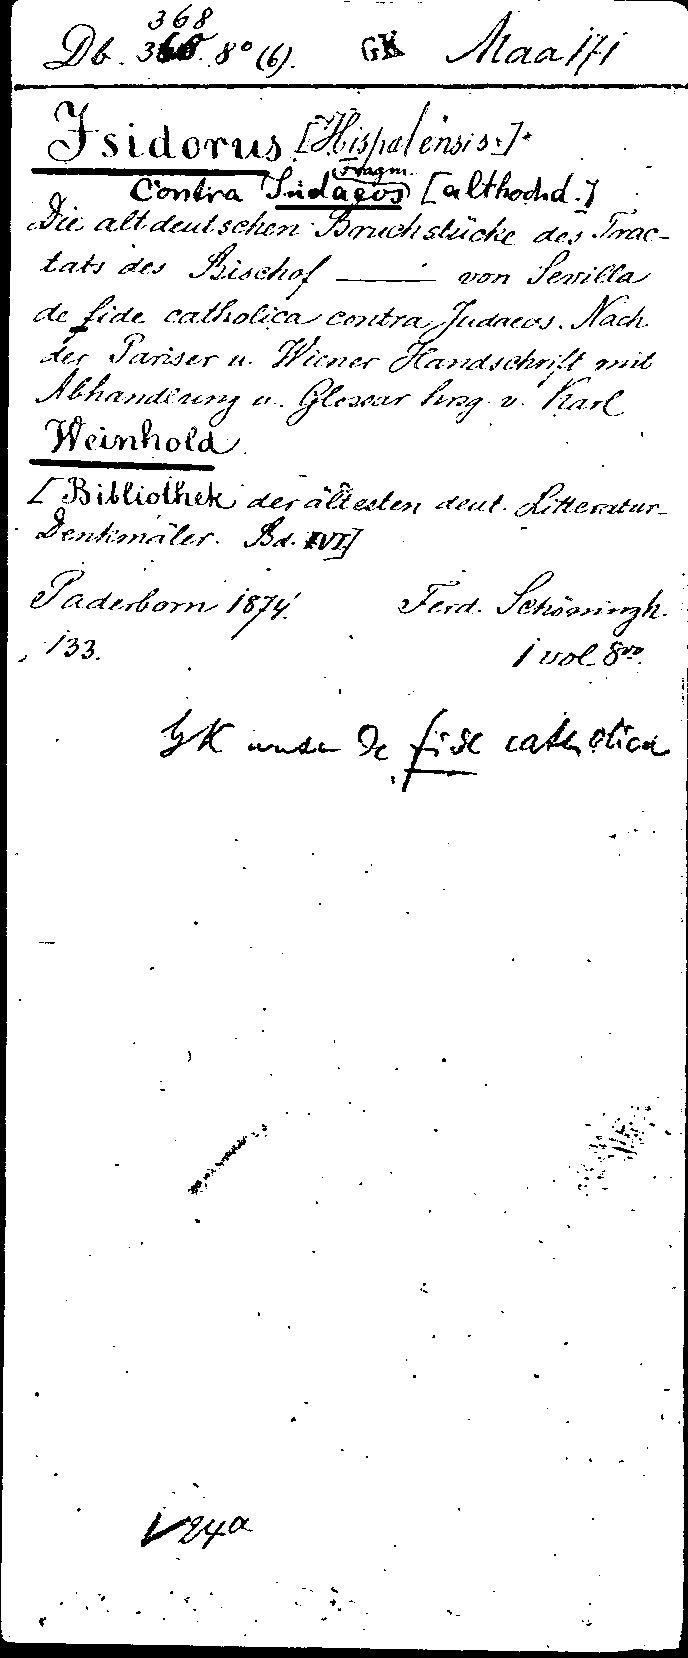 368
Db. 8° (6). GK Maa 171
Isidorus [Hispalensis.]
Fragm.
Contra Judaeos [althochd.]
Die altdeutschen Bruchstücke des Trac-
tats des Bischof ——— von Sevilla
de fide catholica contra Judaeos. Nach
der Pariser u. Wiener Handschrift mit
Abhandlung u. Glossar hrsg v. Karl
Weinhold
[Bibliothek der ältesten deut. Litteratur-
Denkmäler. Bd. VI]
Paderborn 1874. Ferd. Schöningh.
133. 1 vol 8vo.
GK unter De fide catholica
24a